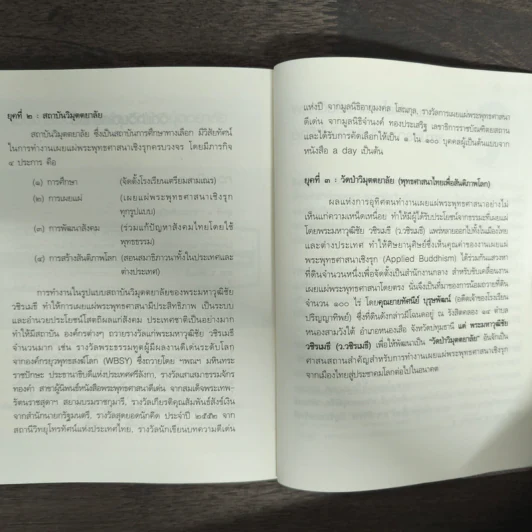 ยุคที่ ๒ : สถาบันวิมุตตยาลัย
สถาบันวิมุตตยาลัย ซึ่งเป็นสถาบันการศึกษาทางเลือก มีวิสัยทัศน์
ในการทำงานเผยแผ่พระพุทธศาสนาเชิงรุกครบวงจร โดยมีภารกิจ
๔ ประการ คือ
(๑) การศึกษา (จัดตั้งโรงเรียนเตรียมสามเณร)
(๒) การเผยแผ่ (เผยแผ่พระพุทธศาสนาเชิงรุก
ทุกรูปแบบ)
(๓) การพัฒนาสังคม (ร่วมแก้ปัญหาสังคมไทยโดยใช้
พุทธธรรม)
(๔) การสร้างสันติภาพโลก (สอนสมาธิภาวนาทั้งในประเทศและ
ต่างประเทศ)
การทำงานในรูปแบบสถาบันวิมุตตยาลัยของพระมหาวุฒิชัย
วชิรเมธี ทำให้การเผยแผ่พระพุทธศาสนามีประสิทธิภาพ เป็นระบบ
และอำนวยประโยชน์โสตถิผลแก่สังคม ประเทศชาติเป็นอย่างมาก
ทำให้มีสถาบัน องค์กรต่างๆ ถวายรางวัลแก่พระมหาวุฒิชัย วชิรเมธี
จำนวนมาก เช่น รางวัลพระธรรมทูตผู้มีผลงานดีเด่นระดับโลก
จากองค์การยุวพุทธสงฆ์โลก (WBSY) ซึ่งถวายโดย ฯพณฯ มหินทระ
ราชปักษะ ประธานาธิบดีแห่งประเทศศรีลังกา), รางวัลเสาเสมาธรรมจักร
ทองคำ สาขาผู้นิพนธ์หนังสือพระพุทธศาสนาดีเด่น จากสมเด็จพระเทพ-
รัตนราชสุดาฯ สยามบรมราชกุมารี, รางวัลเกียรติคุณสัมพันธ์สังข์เงิน
จากสำนักนายกรัฐมนตรี, รางวัลสุดยอดนักคิด ประจำปี ๒๕๕๒ จาก
สถานีวิทยุโทรทัศน์แห่งประเทศไทย, รางวัลนักเขียนบทความดีเด่น
แห่งปี จากมูลนิธิอายุมงคล โสณกุล, รางวัลการเผยแผ่พระพุทธศาสนา
ดีเด่น จากมูลนิธิจำนงค์ ทองประเสริฐ เลขาธิการราชบัณฑิตยสถาน
และได้รับการคัดเลือกให้เป็น ๑ ใน ๑๐๐ บุคคลผู้เป็นต้นแบบจาก
หนังสือ a day เป็นต้น
ยุคที่ ๓ : วัดป่าวิมุตตยาลัย (พุทธศาสนาไทยเพื่อสันติภาพโลก)
ผลแห่งการอุทิศตนทำงานเผยแผ่พระพุทธศาสนาอย่างไม่
เห็นแก่ความเหนื่อยเหนื่อย ทำให้มีผู้ได้รับประโยชน์จากธรรมะที่เผยแผ่
โดยพระมหาวุฒิชัย วชิรเมธี (ว.วชิรเมธี) แพร่หลายออกไปทั้งในเมืองไทย
และต่างประเทศ ทำให้ศิษยานุศิษย์ซึ่งเห็นคุณค่าของงานเผยแผ่
พระพุทธศาสนาเชิงรุก (Applied Buddhism) ได้ร่วมกันแสวงหา
ที่ดินจำนวนหนึ่งเพื่อจัดตั้งเป็นสำนักงานกลาง สำหรับขับเคลื่อนงาน
เผยแผ่พระพุทธศาสนาโดยตรง นั่นจึงเป็นที่มาของการน้อมถวายที่ดิน
จำนวน ๑๐๐ ไร่ โดยคุณยายทัศนีย์ บุรุษพัฒน์ (อดีตเจ้าของโรงเรียน
ปริญญาทิพย์) ซึ่งที่ดินดังกล่าวมีโฉนดอยู่ ณ รังสิตคลอง ๑๔ ตำบล
หนองสามวังใต้ อำเภอหนองเสือ จังหวัดปทุมธานี แด่ พระมหาวุฒิชัย
วชิรเมธี (ว.วชิรเมธี) เพื่อให้พัฒนาเป็น "วัดป่าวิมุตตยาลัย" อันจักเป็น
ศาสนสถานสำคัญสำหรับการทำงานเผยแผ่พระพุทธศาสนาเชิงรุก
จากเมืองไทยสู่ประชาคมโลกต่อไปในอนาคต